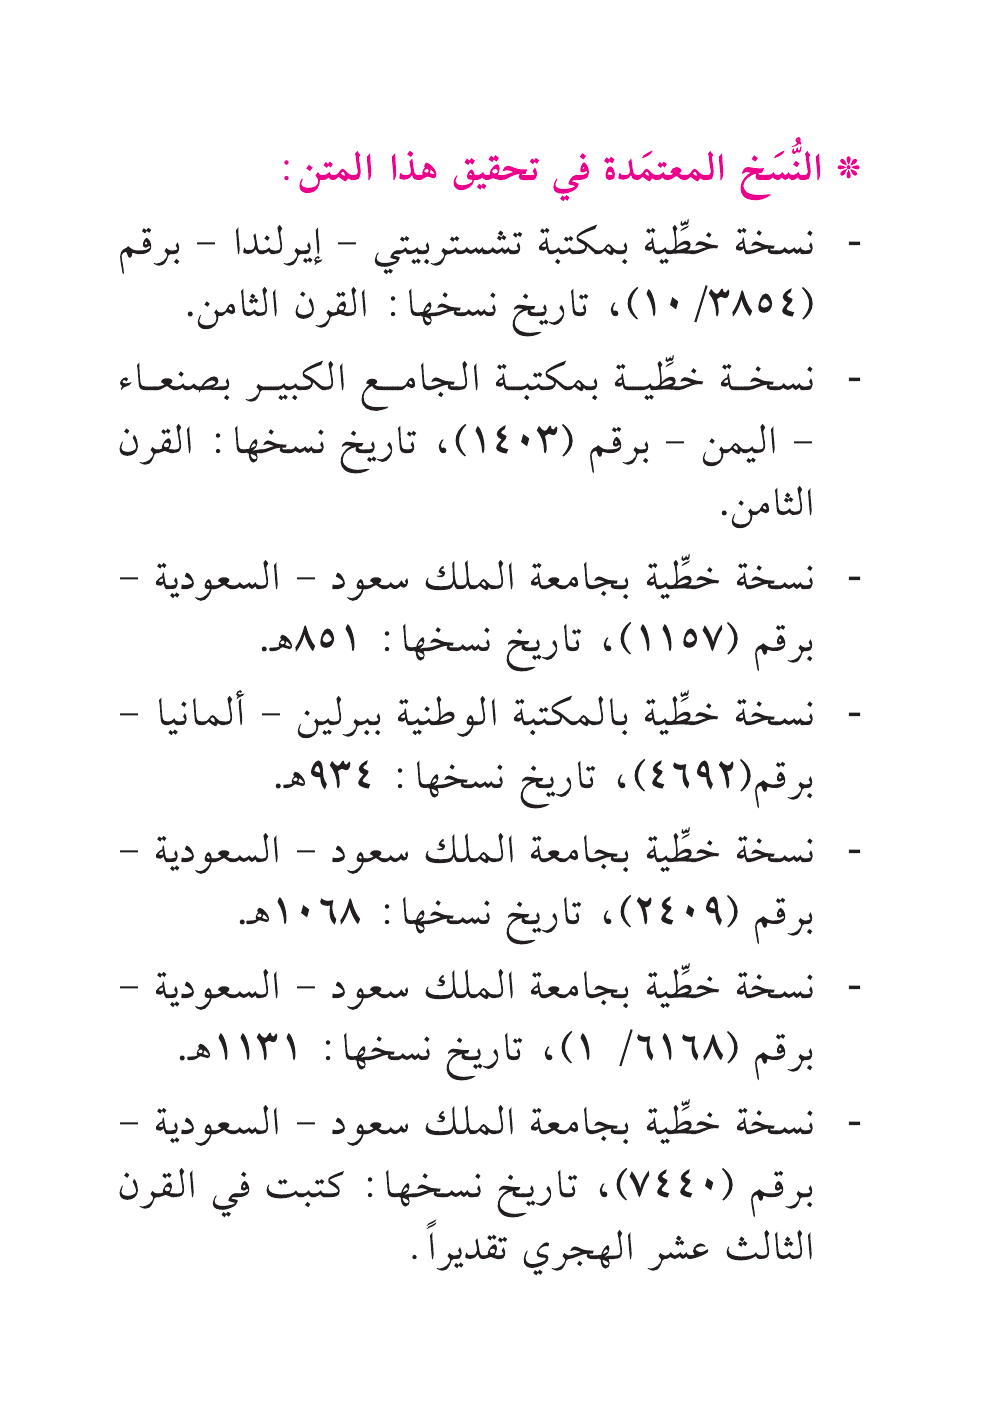 * النُّسَخ المعتمَدة في تحقيق هذا المتن:
- نسخة خطِّية بمكتبة تشستربيتي – إيرلندا – برقم
(٣٨٥٤/ ١٠)، تاريخ نسخها: القرن الثامن.
- نسخة خطِّية بمكتبة الجامع الكبير بصنعاء
– اليمن – برقم (١٤٠٣)، تاريخ نسخها: القرن
الثامن.
- نسخة خطِّية بجامعة الملك سعود – السعودية –
برقم (١١٥٧)، تاريخ نسخها: ٨٥١هـ.
- نسخة خطِّية بالمكتبة الوطنية ببرلين – ألمانيا –
برقم(٤٦٩٢)، تاريخ نسخها: ٩٣٤هـ.
- نسخة خطِّية بجامعة الملك سعود – السعودية –
برقم (٢٤٠٩)، تاريخ نسخها: ١٠٦٨هـ.
- نسخة خطِّية بجامعة الملك سعود – السعودية –
برقم (٦١٦٨/ ١)، تاريخ نسخها: ١١٣١هـ.
- نسخة خطِّية بجامعة الملك سعود – السعودية –
برقم (٧٤٤٠)، تاريخ نسخها: كتبت في القرن
الثالث عشر الهجري تقديراً.